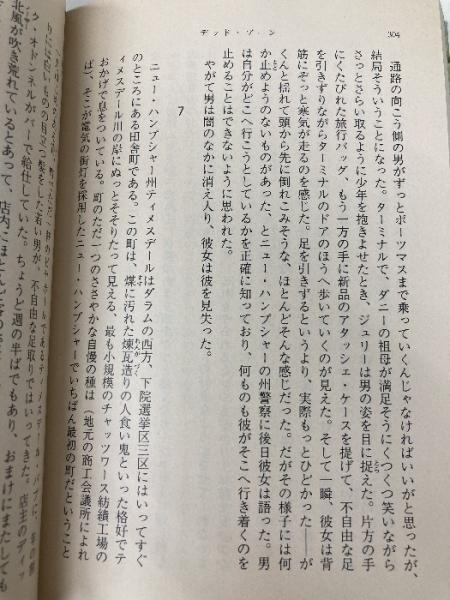 304
デッド・ゾーン
通路の向こう側の男がずっとポーツマスまで乗っていくんじゃなければいいがと思ったが、
結局そういうことになった。ターミナルで、ダニーの祖母が満足そうにくつくつ笑いながら
さっとさらい取るように少年を抱きよせたとき、ジュリーは男の姿を目に捉えた。片方の手
にくたびれた旅行バッグ、もう一方の手に新品のアタッシェ・ケースを提げて、不自由な足
を引きずりながらターミナルのドアのほうへ歩いていくのが見えた。そして一瞬、彼女は背
筋にぞっと寒気が走るのを感じた。足を引きずるというより、実際もっとひどかった――が
くんと揺れて頭から先に倒れこみそうな、ほとんどそんな感じだった。だがその様子には何
か止めようのないものがあった、とニュー・ハンプシャーの州警察に後日彼女は語った。男
は自分がどこへ行こうとしているかを正確に知っており、何ものも彼がそこへ行き着くのを
止めることはできないように思われた。
やがて男は闇のなかに消え入り、彼女は彼を見失った。
7
ニュー・ハンプシャー州ティメスデールはダラムの西方、下院選挙区三区にはいってすぐ
のところにある田舎町である。この町は、煤に汚れた煉瓦造りの人食い鬼といった格好でテ
ィメスデール川の岸にぬっとそそりたって見える、最も小規模のチャッツワース紡績工場の
おかげで息をついている。町のただ一つのささやかな自慢の種は（地元の商工会議所によれ
ば）、そこが電気の街灯を採用したニュー・ハンプシャーでいちばん最初の町だということ
髪をした若い男が、不自由な足取りではいってきた。店主のディッ
ク・オドンネルがバーで給仕していた。ちょうど週の半ばでもあり、おまけにまたしても
北風が吹き荒れているとあって、店内にほとんど